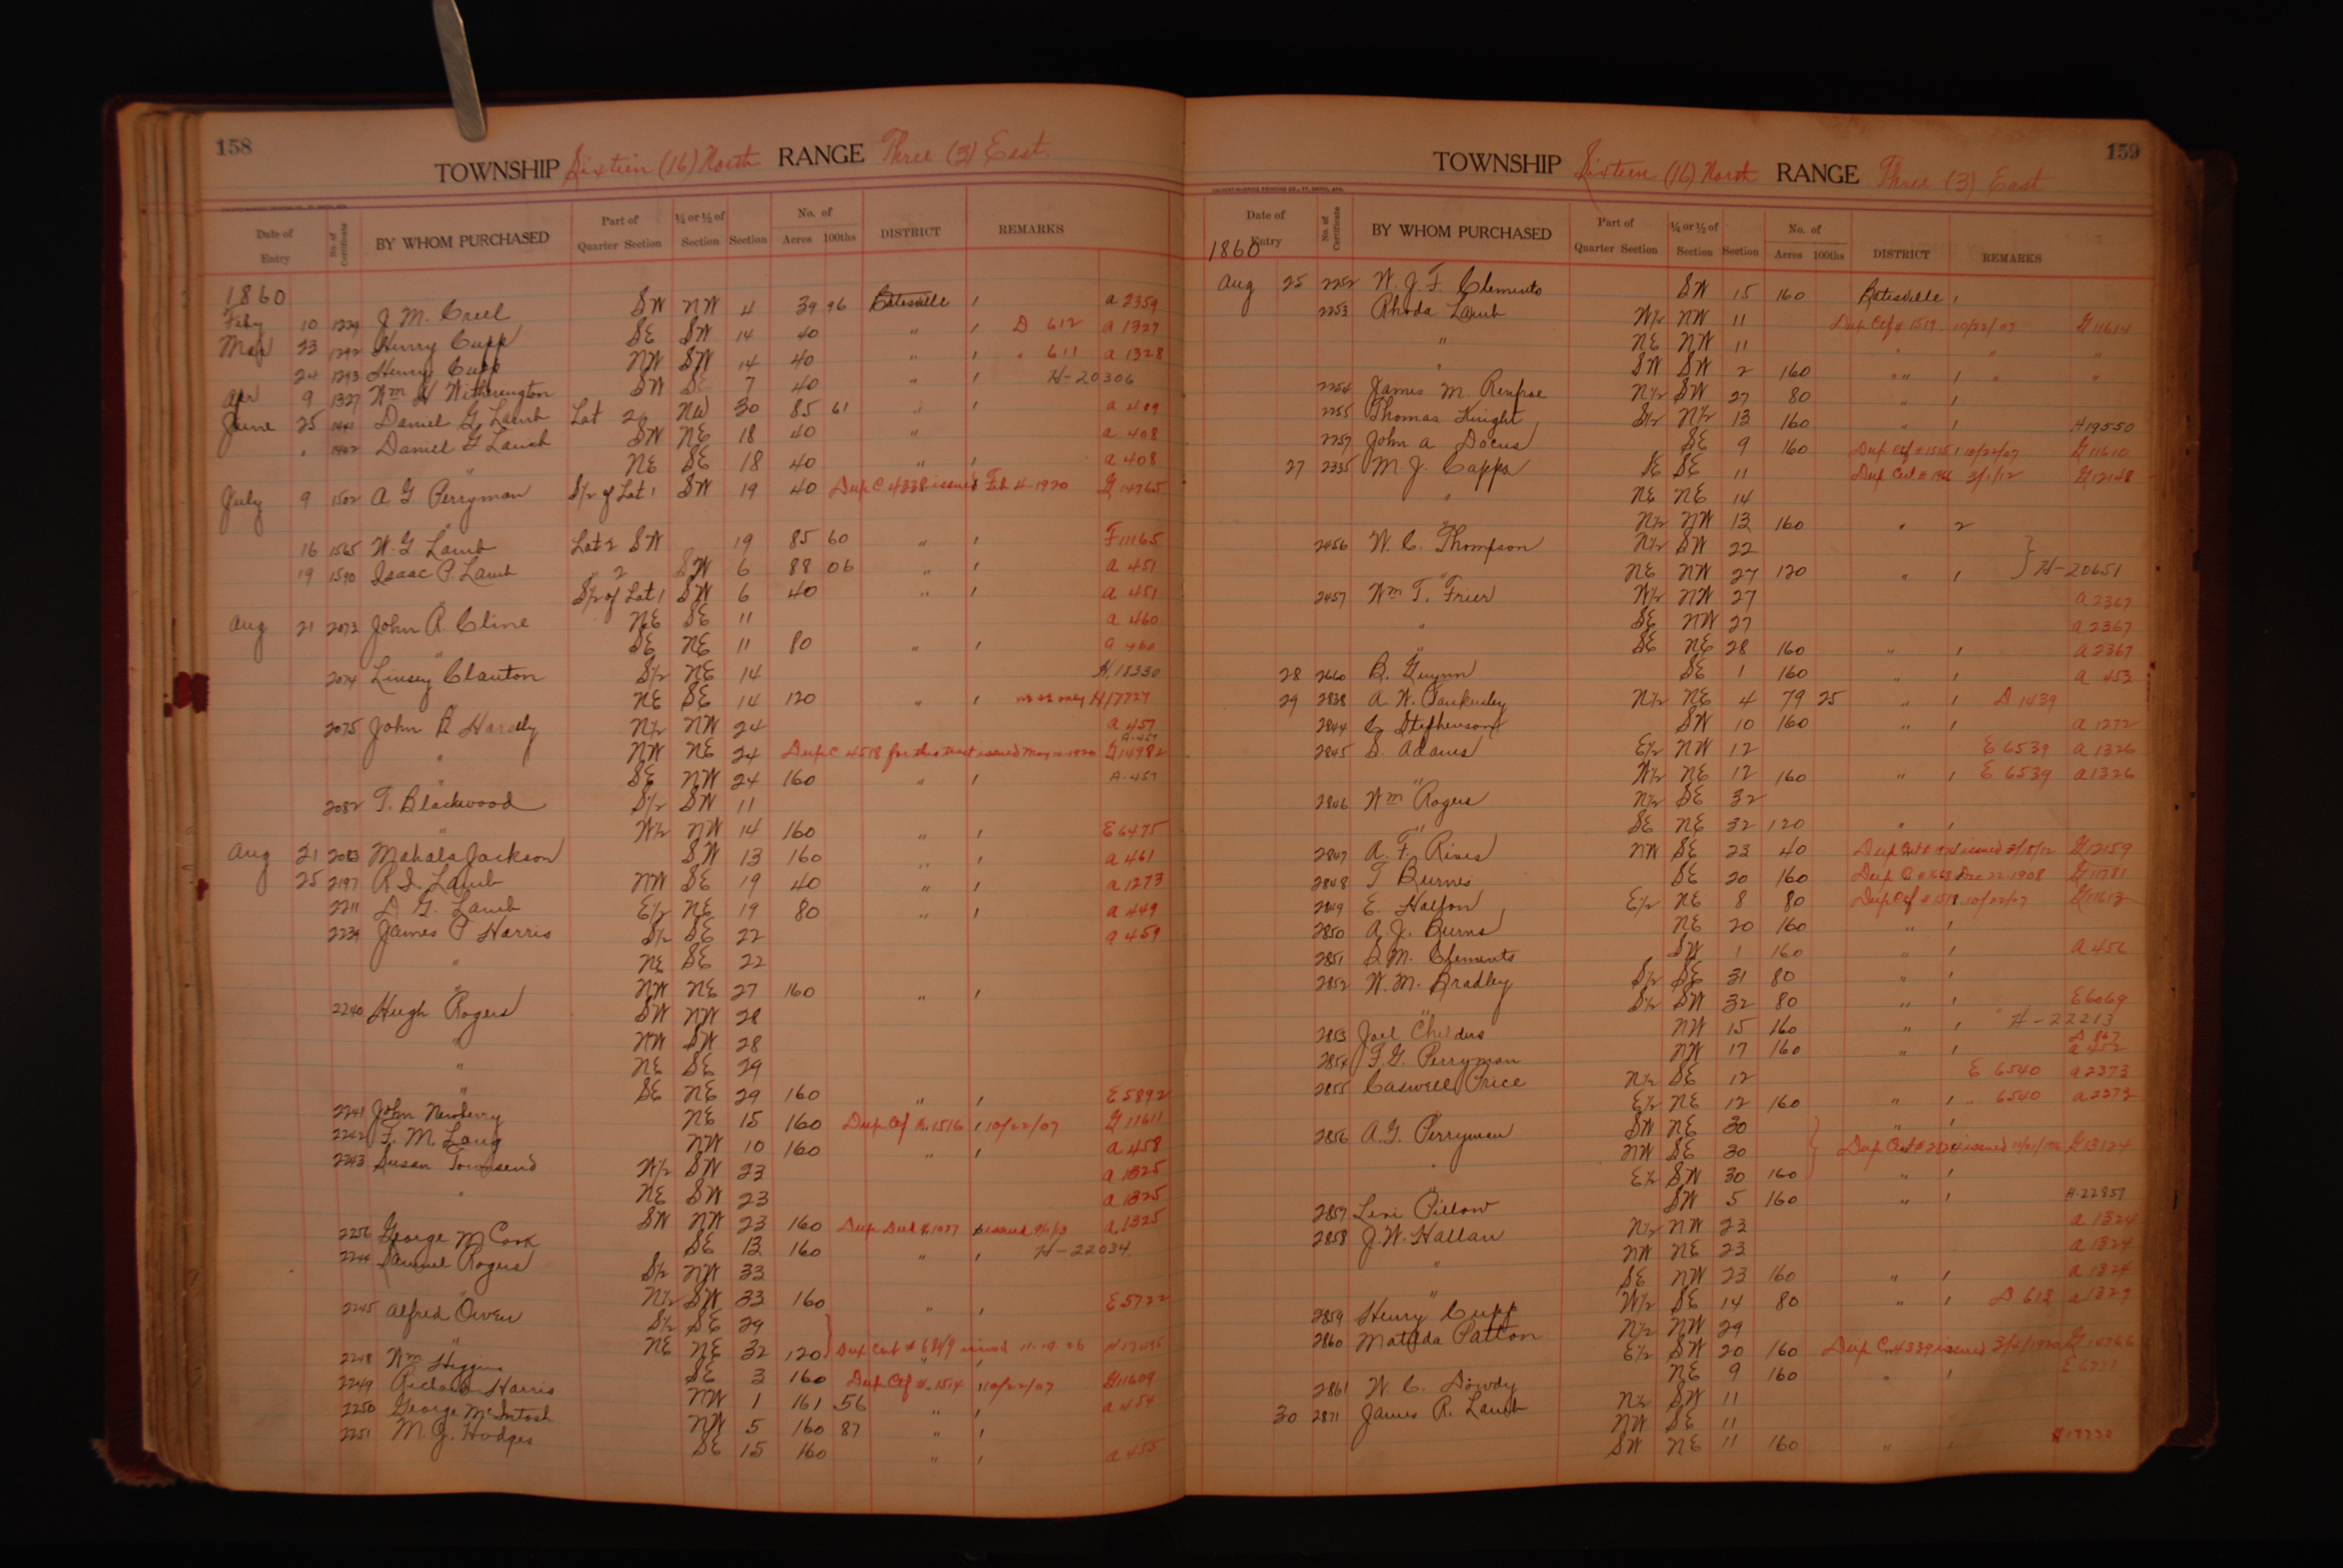 158
TOWNSHIP Sixteen (16) North RANGE Three (3) East
Date of Entry No. of Certificate BY WHOM PURCHASED Part of Quarter Section ¼ or ½ of Section Section No. of Acres 100ths DISTRICT REMARKS
1860
Feby 10 1229 J. M. Creel SW NW 4 39 96 Batesville 1 a 2359
Mar 23 1292 Henry Cupp SE SW 14 40 " 1 D 612 a 1327
24 1293 Henry Cupp NW SW 14 40 " 1 " 611 a 1328
Apr 9 1327 Wm H Witherington SW SE 7 40 " 1 H-20306
June 25 1441 Daniel G. Lamb Lot 2 NW 30 85 61 " 1 a 409
" 1442 Daniel G Lamb SW NE 18 40 " a 408
" NE SE 18 40 " 1 a 408
July 9 1502 A. G Perryman S½ of Lot 1 SW 19 40 Dup C. 4338 issued Feb 4-1920 G 14765
16 1565 W. G. Lamb Lot 2 SW 19 85 60 " 1 F 11165
19 1590 Isaac P. Lamb " 2 SW 6 88 06 " 1 a 451
" S½ of Lot 1 SW 6 40 " 1 a 451
Aug 21 2073 John R. Cline NE SE 11 a 460
" SE NE 11 80 " 1 a 460
2074 Linsey Clanton S½ NE 14 H 18330
NE SE 14 120 " 1 H 17727
2075 John B Harsely N½ NW 24 a 457
" NW NE 24 Dup C 4518 for this tract issued May 12-1920 G 14982
" SE NW 24 160 " 1 A-457
2082 T. Blackwood S½ SW 11
" W½ NW 14 160 " 1 E 6475
Aug 21 2083 Mahala Jackson SW 13 160 " 1 a 461
25 2197 R. S. Lamb NW SE 19 40 " 1 a 1273
2211 D. G. Lamb E½ NE 19 80 " 1 a 449
2239 James P Harris S½ SE 22 a 459
" NE SE 22
" NW NE 27 160 " 1
2240 Hugh Rogers SW NW 28
" NW SW 28
" NE SE 29
" SE NE 29 160 " 1 E 5892
2241 John Newberry NE 15 160 Dup Cf #1516 10/22/07 G 11611
2242 F. M. Lang NW 10 160 " 1 a 458
2243 Susan Townsend W½ SW 23 a 1325
" NE SW 23 a 1325
SW NW 23 160 a 1325
2256 George M Cook SE 13 160 " 1 H-22034
2244 Samuel Rogers S½ NW 33
" N½ SW 33 160 " 1 E 5722
2245 Alfred Owen S½ SE 29
" NE NE 32 120 Dup Cert # 6849 issued 11-19-26
2248 Wm Higgins SE 3 160 Dup Cf #1514 10/22/07 G 11609
2249 Richard Harris NW 1 161 56 " 1 a 454
2250 George McIntosh NW 5 160 87 " 1
2251 M. J. Hodges SE 15 160 " 1 a 455
159
TOWNSHIP Sixteen (16) North RANGE Three (3) East
Date of Entry No. of Certificate BY WHOM PURCHASED Part of Quarter Section ¼ or ½ of Section Section No. of Acres 100ths DISTRICT REMARKS
1860
Aug 25 2252 W. J. F Clements SW 15 160 Batesville 1
2253 Rhoda Lamb W½ NW 11 Dup Cf # 1519 10/22/07 G 11614
" NE NW 11 " " "
" SW SW 2 160 " 1 " "
2254 James M. Renfroe N½ SW 27 80 " 1
2255 Thomas Knight S½ N½ 13 160 " 1 H 19550
2257 John A Docus SE 9 160 Dup Cf # 1515 10/22/07 G 11610
27 2335 M. J. Capps SE SE 11 2/1/12 G 12148
" NE NE 14
" N½ NW 13 160 " 2
2456 W. C. Thompson N½ SW 22
" NE NW 27 120 " 1 H-20651
2457 Wm T. Frier W½ NW 27 a 2367
" SE NW 27 a 2367
" SE NE 28 160 " 1 a 2367
28 2660 B. Guynn SE 1 160 " 1 a 453
29 2838 A. W. Tankersley N½ NE 4 79 25 " 1 D 1439
2844 C. Stephenson SW 10 160 " 1 a 1272
2845 S. Adams E½ NW 12 E 6539 a 1326
" W½ NE 12 160 " 1 E 6539 a 1326
2846 Wm Rogers N½ SE 32
" SE NE 32 120 " 1
2847 A. F. Rives NW SE 23 40 G 12159
2848 T Burnes SE 20 160 Dec 22-1908 G 11781
2849 E. Halfon E½ NE 8 80 Dup Cf # 1518 10/22/07 G 11613
2850 A. J. Burns NE 20 160 " 1
2851 S. M. Clements SW 1 160 " 1 a 456
2852 W. M. Bradley S½ SE 31 80 " 1
" S½ SW 32 80 " 1 E 6069
2853 Joel Childers NW 15 160 " 1 H-22213
2854 F. G. Perryman NW 17 160 " 1 D 867 a 452
2855 Caswell Price N½ SE 12 E 6540 a 2373
" E½ NE 12 160 " 1 " 6540 a 2373
2856 A. G. Perryman SW NE 30 " 1
" NW SE 30 G 13124
" E½ SW 30 160 " 1
2857 Levi Pillow SW 5 160 " 1 H-22857
2858 J. W. Hallan N½ NW 23 a 1324
" NW NE 23 a 1324
" SE NW 23 160 " 1 a 1324
2859 Henry Cupp W½ SE 14 80 " 1 D 613 a 1329
2860 Matilda Patton N½ NW 29
E½ SW 20 160 Dup C. 4339 issued 2/4/1920 G 14766
2861 W. C. Dowdy NE 9 160 " 1
30 2871 James R. Lamb N½ SW 11
NW SE 11
SW NE 11 160 " 1 H 17730